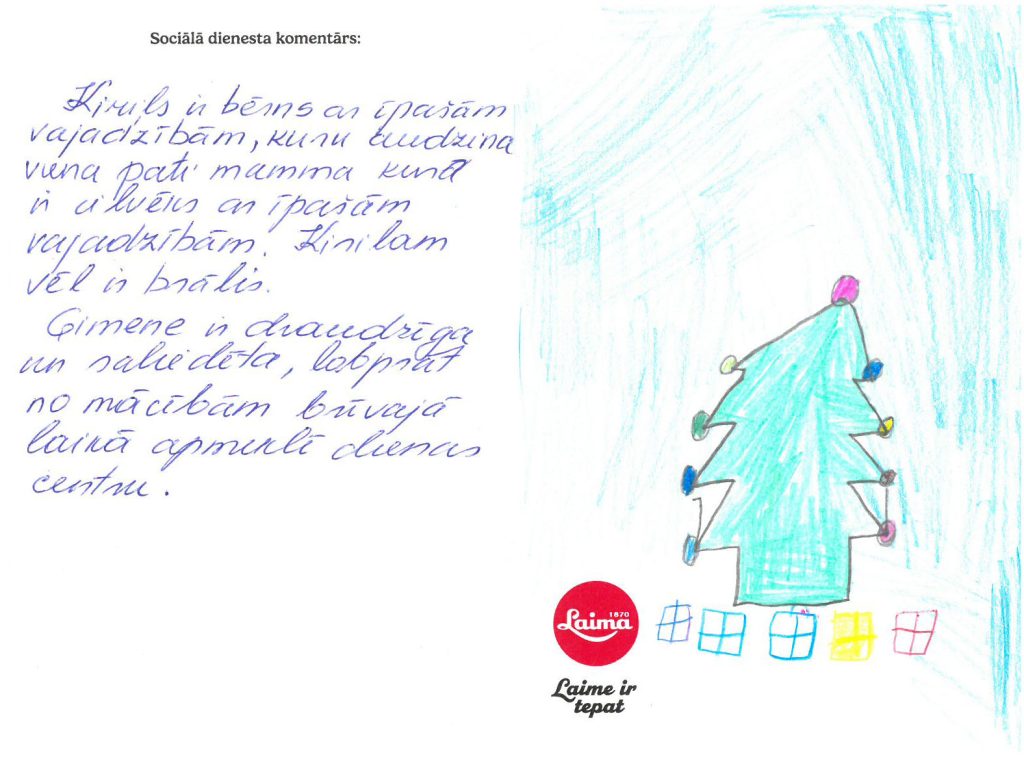 Sociālā dienesta komentārs:
Kirils ir bērns ar īpašām
vajadzībām, kuru audzina
viena pati mamma kura
ir cilvēks ar īpašām
vajadzībām. Kirilam
vēl ir brālis.
Ģimene ir draudzīga
un saliedēta, labprāt
no mācībām brīvajā
laikā apmeklē dienas
centru.
1870
Laima
Laime ir
tepat